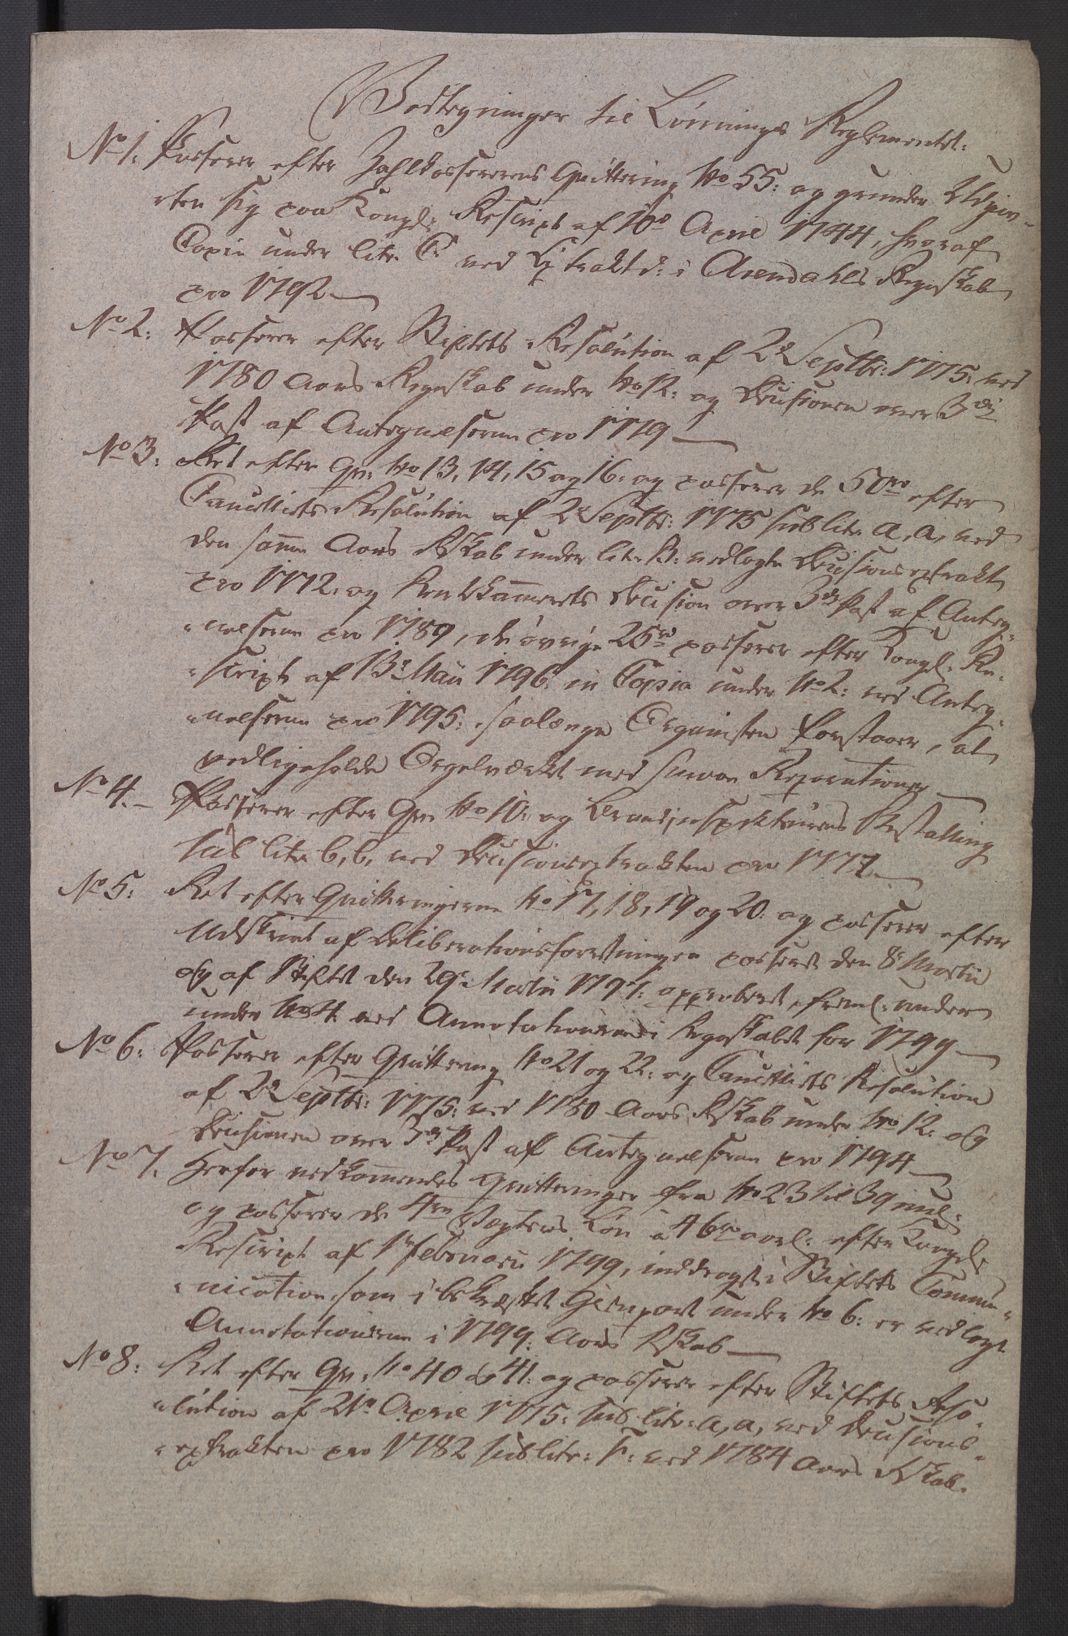 Vedtegninger til Lønnings Reglementet:
No 1. Passerer efter Zahlkassererens Qvittering No 55: og grunder Udgiv-
ten sig paa Kongl: Rescript af 16de April 1744, hvoraf
Copie under litr. C ved Extraktd: i Arendahls Regnskab
pro 1792
No 2: Passerer efter Stiftets Resolution af 2d Septbr: 1775: ved
1780 Aars Regnskab under No 12: og Decisionen over 3die
Post af Antegnelserne pro 1779
No 3: Ret efter Qv: No 13, 14, 15 og 16: og passerer de 50 rd efter
Cancelliets Resolution af 2d Septbr: 1775 sub litr. a, a, ved
den samme Aars R:skab under litr. B: vedlagte Decisions extrakt
pro 1772. og Rentekammerets Decision over 3de Post af Anteg-
nelserne pro 1789, de øvrige 25 rd passerer efter Kongl: Re-
script af 13d Maii 1796: in Copia under No 2: ved Anteg-
nelserne pro 1795: saalænge Organisten forstaaer, at
vedligeholde Orgelværket med smaae Reparationer
No 4. Passerer efter Qv: No 10: og Brandinspekteurens Bestalling
sub litr. b, b, ved Decisionsextrakten pro 1777.
No 5: Ret efter Qvitteringerne No 17, 18, 19 og 20: og passerer efter
Udskrivt af Deliberationsforretningen passeret den 8d Martii
og af Stiftet den 29d Martii 1797: approberet, freml: under
under No 4 ved Annotationerne i Regnskabet for 1799
No 6: Passerer efter Qvittering No 21 og 22: og Cancelliets Resolution
af 2d Septbr: 1775: ved 1780 Aars R:skab under No 12. og
Decisionen over 3de Post af Antegnelserne pro 1794
No 7. Herfor vedkommendes Qvitteringer fra No 23 til 39 incl:
og passerer de 4re Vægteres Løn a 46 rd aarl: efter Kongel:
Rescript af 1d Februarii 1799, inddraget i Stiftets Commu-
nication som i bekræftet Gienpart under No 6: er vedlagt
Annotationerne i 1799: Aars R:skab
No 8: Ret efter Qv: No 40 & 41: og passerer efter Stiftets Reso-
lution af 21de April 1775: sub litr: a, a, ved Decisions-
extrakten pro 1782 sub litr: F: ved 1784 Aars R:skab.